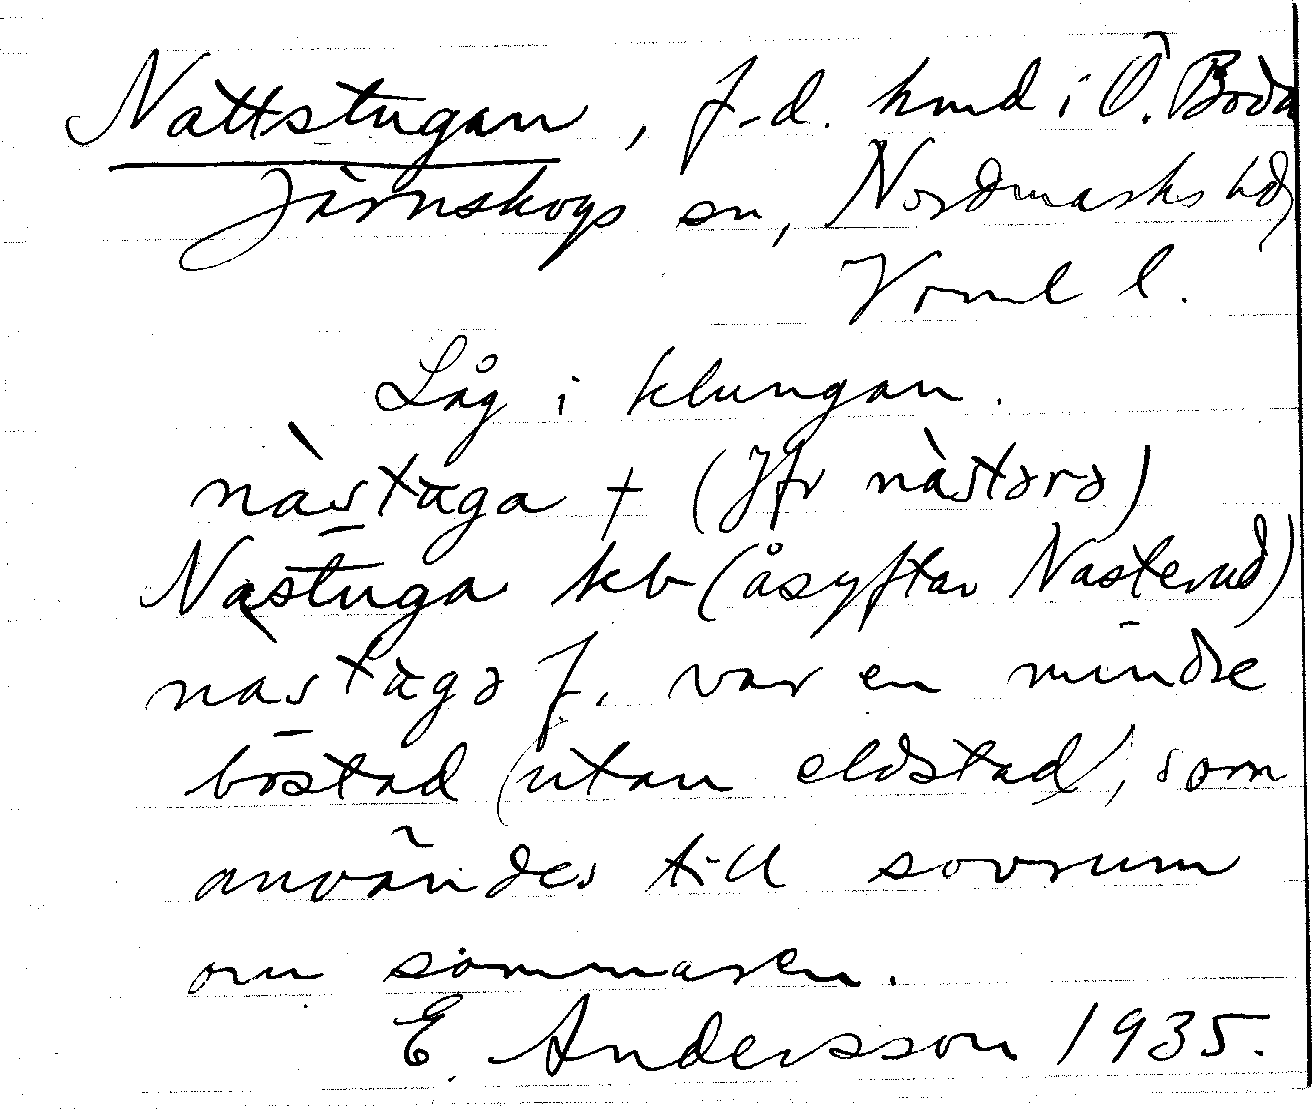 Nattstugan, f.d. hmd i Ö. Boda
Järnskogs sn, Nordmarks hd,
Vrml l.
Låg i klungan.
nàstuga † (Jfr nàstərə)
Nastuga kb (åsyftar Nasterud)
nastugə f. var en mindre
bostad (utan eldstad), som
användes till sovrum
om sommaren.
E. Andersson 1935.